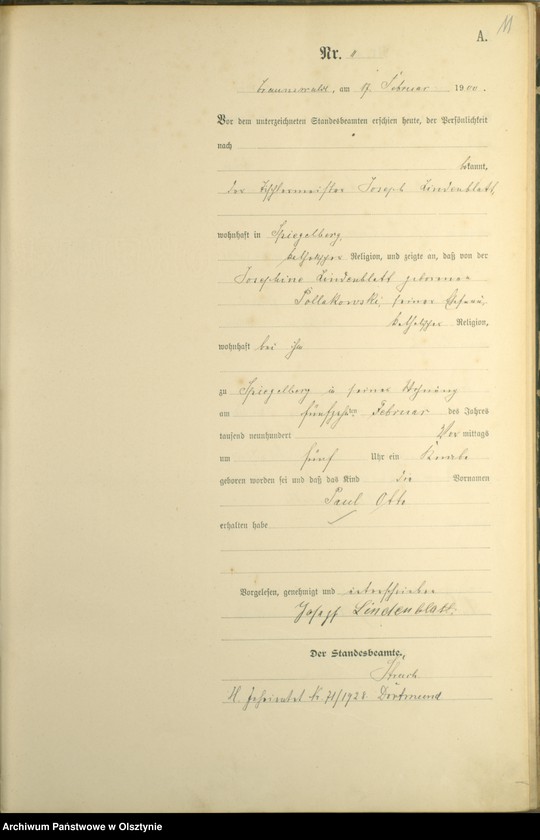 11
A.
Nr. 11
Braunswalde, am 17. Februar 1900.
Vor dem unterzeichneten Standesbeamten erschien heute, der Persönlichkeit
nach
bekannt,
der Tischlermeister Joseph Lindenblatt,
wohnhaft in Spiegelberg,
katholischer Religion, und zeigte an, daß von der
Josephine Lindenblatt geborenen
Pollakowski, seiner Ehefrau,
katholischer Religion,
wohnhaft bei ihm
zu Spiegelberg in seiner Wohnung
am fünfzehnten Februar des Jahres
tausend neunhundert Vormittags
um fünf Uhr ein Knabe
geboren worden sei und daß das Kind die Vornamen
Paul Otto
erhalten habe
Vorgelesen, genehmigt und unterschrieben
Josef Lindenblatt.
Der Standesbeamte.
H. geheiratet Nr. 71/1928 Dortmund
Archiwum Państwowe w Olsztynie